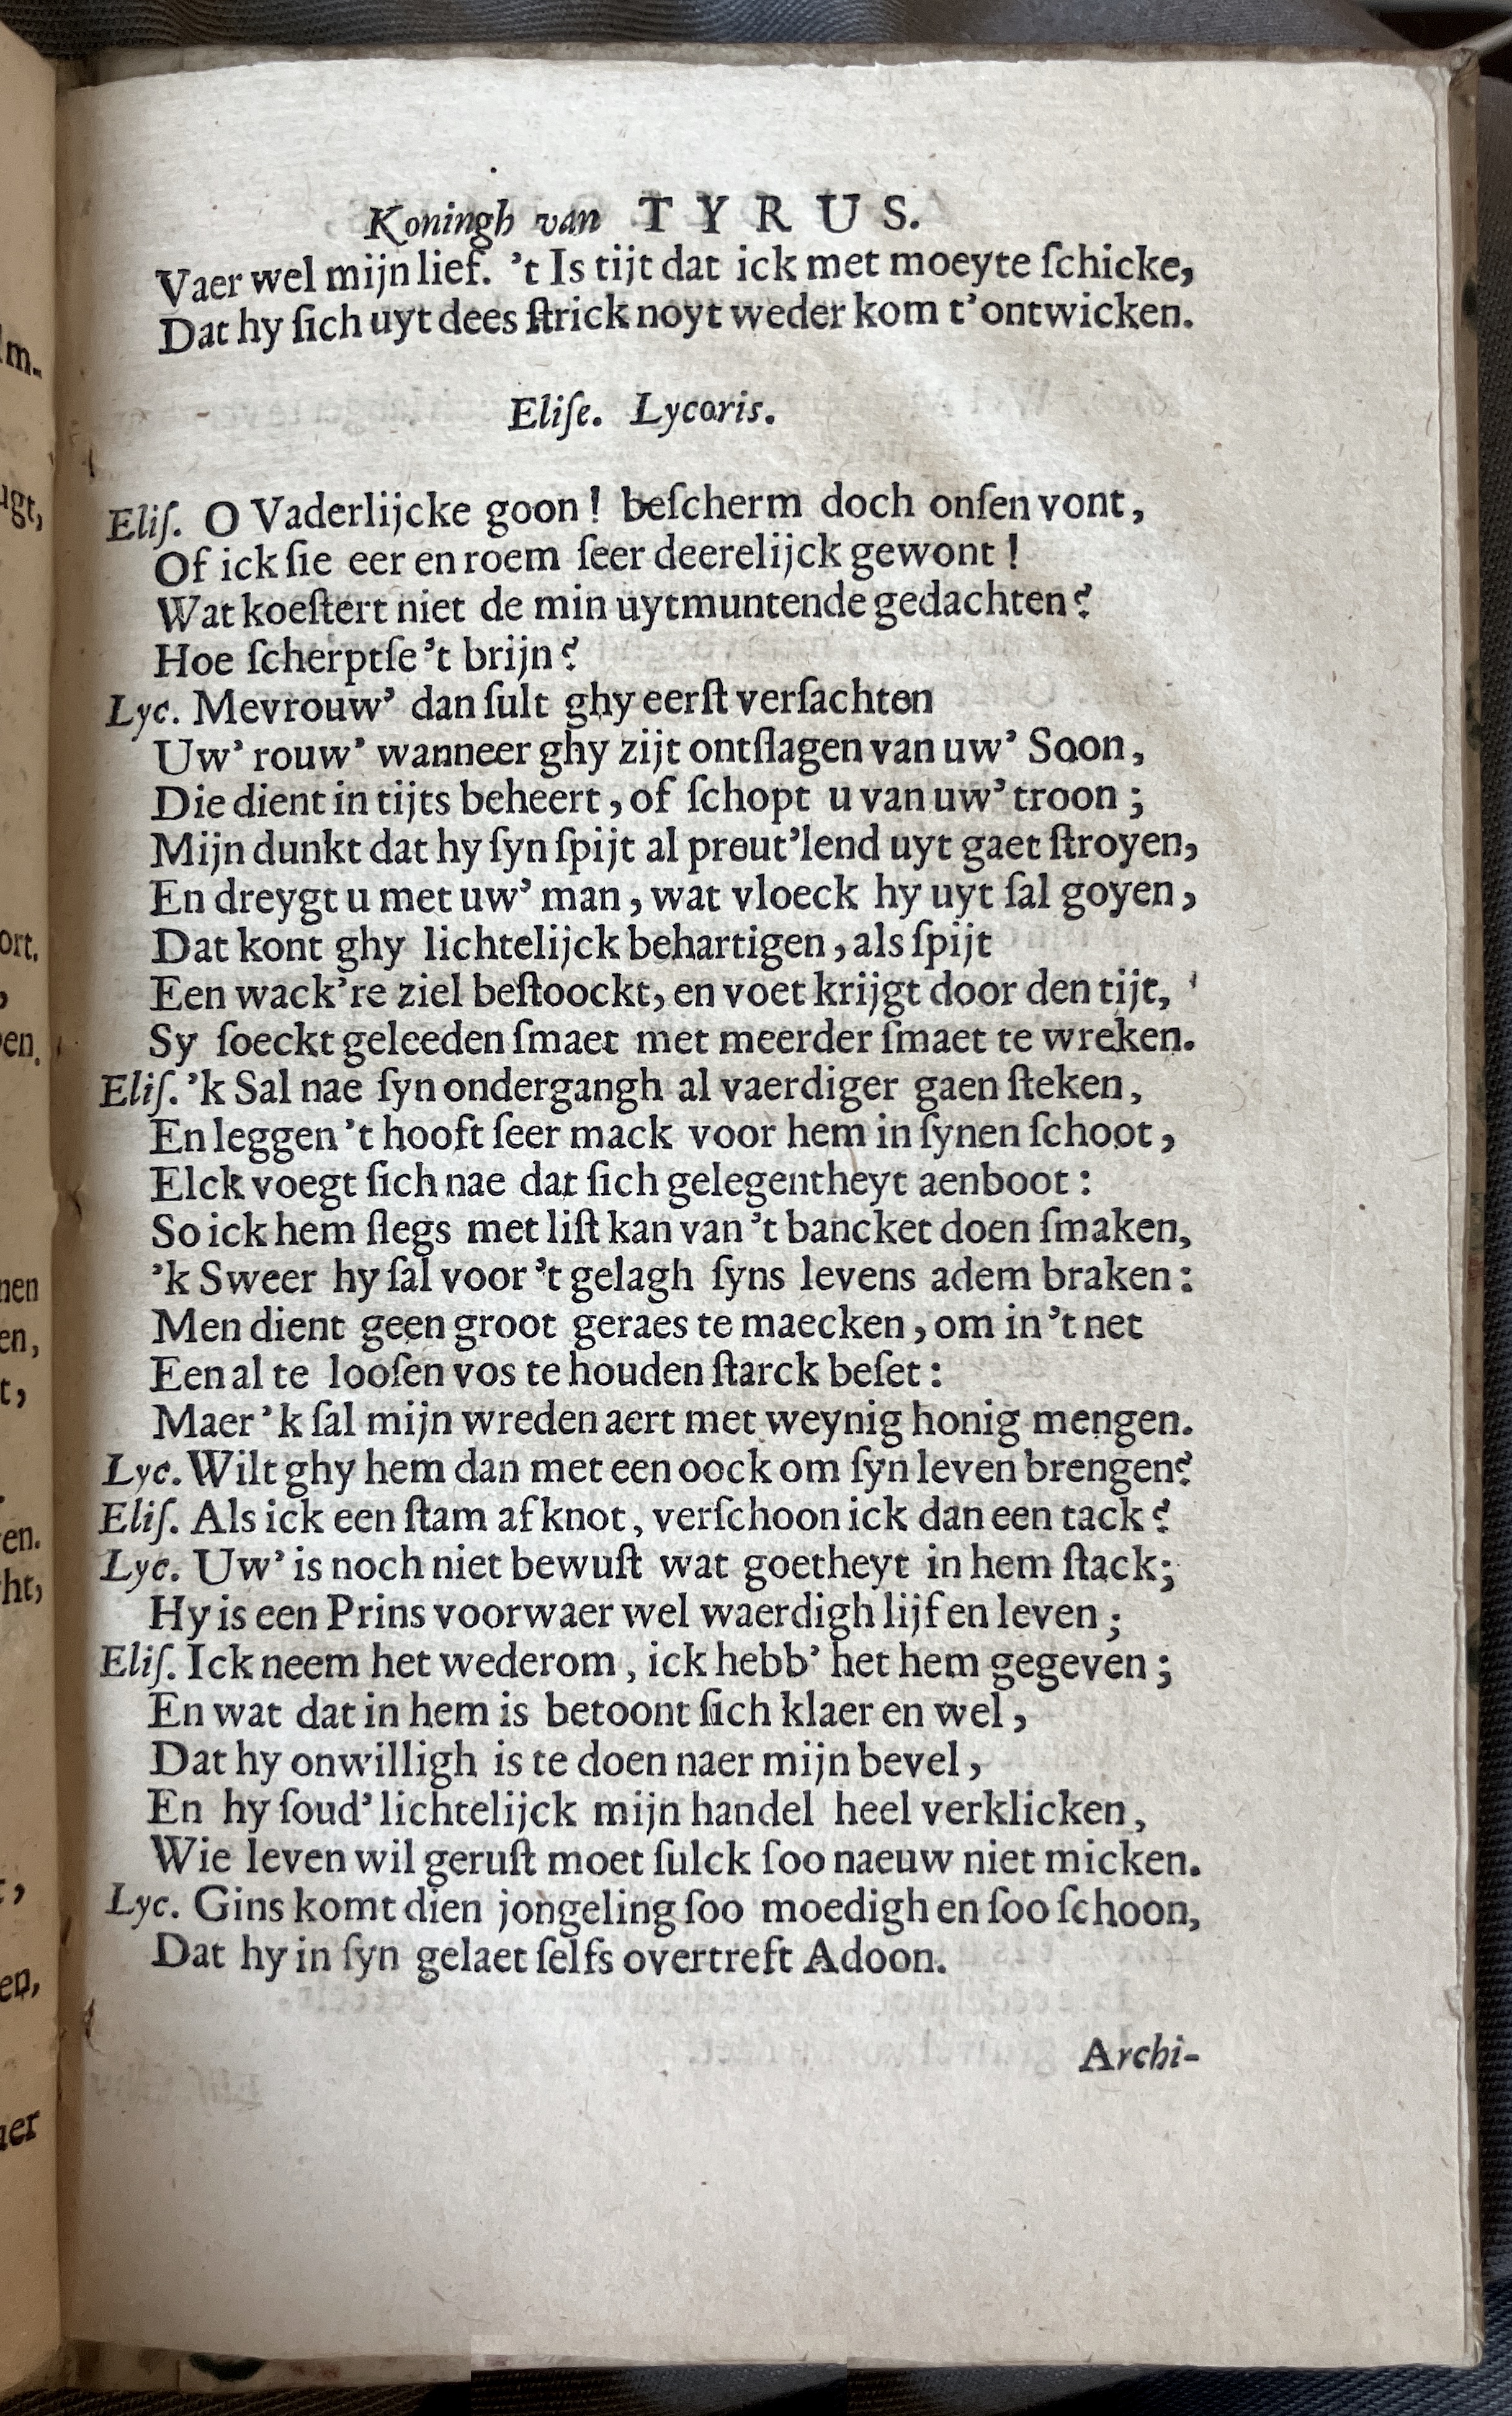 Koningh van TYRUS.
Vaer wel mijn lief. 't Is tijt dat ick met moeyte ſchicke,
Dat hy ſich uyt dees ſtrick noyt weder kom t'ontwicken.
Eliſe. Lycoris.
Eliſ. O Vaderlijcke goon! beſcherm doch onſen vont,
Of ick ſie eer en roem ſeer deerelijck gewont!
Wat koeſtert niet de min uytmuntende gedachten?
Hoe ſcherptſe 't brijn?
Lyc. Mevrouw' dan ſult ghy eerſt verſachten
Uw' rouw' wanneer ghy zijt ontſlagen van uw' Soon,
Die dient in tijts beheert, of ſchopt u van uw' troon;
Mijn dunkt dat hy ſyn ſpijt al preut'lend uyt gaet ſtroyen,
En dreygt u met uw' man, wat vloeck hy uyt ſal goyen,
Dat kont ghy lichtelijck behartigen, als ſpijt
Een wack're ziel beſtoockt, en voet krijgt door den tijt,
Sy ſoeckt geleeden ſmaet met meerder ſmaet te wreken.
Eliſ. 'k Sal nae ſyn ondergangh al vaerdiger gaen ſteken,
En leggen 't hooft ſeer mack voor hem in ſynen ſchoot,
Elck voegt ſich nae dat ſich gelegentheyt aenboot:
So ick hem ſlegs met liſt kan van 't bancket doen ſmaken,
'k Sweer hy ſal voor 't gelagh ſyns levens adem braken:
Men dient geen groot geraes te maecken, om in 't net
Een al te looſen vos te houden ſtarck beſet:
Maer 'k ſal mijn wreden aert met weynig honig mengen.
Lyc. Wilt ghy hem dan met een oock om ſyn leven brengen?
Eliſ. Als ick een ſtam af knot, verſchoon ick dan een tack?
Lyc. Uw' is noch niet bewuſt wat goetheyt in hem ſtack;
Hy is een Prins voorwaer wel waerdigh lijf en leven;
Eliſ. Ick neem het wederom, ick hebb' het hem gegeven;
En wat dat in hem is betoont ſich klaer en wel,
Dat hy onwilligh is te doen naer mijn bevel,
En hy ſoud' lichtelijck mijn handel heel verklicken,
Wie leven wil geruſt moet ſulck ſoo naeuw niet micken.
Lyc. Gins komt dien jongeling ſoo moedigh en ſoo ſchoon,
Dat hy in ſyn gelaet ſelfs overtreft Adoon.
Archi-